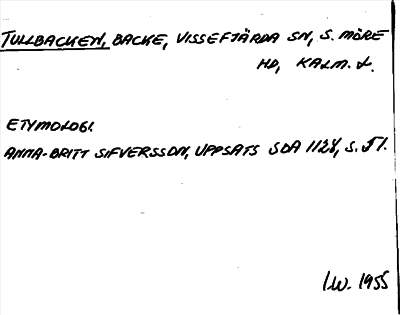 TULLBACKEN, BACKE, VISSEFJÄRDA SN, S. MÖRE
HD, KALM. L.
ETYMOLOGI.
ANNA-BRITT SIFVERSSON, UPPSATS SDA 1128, S. 51.
I.W. 1955